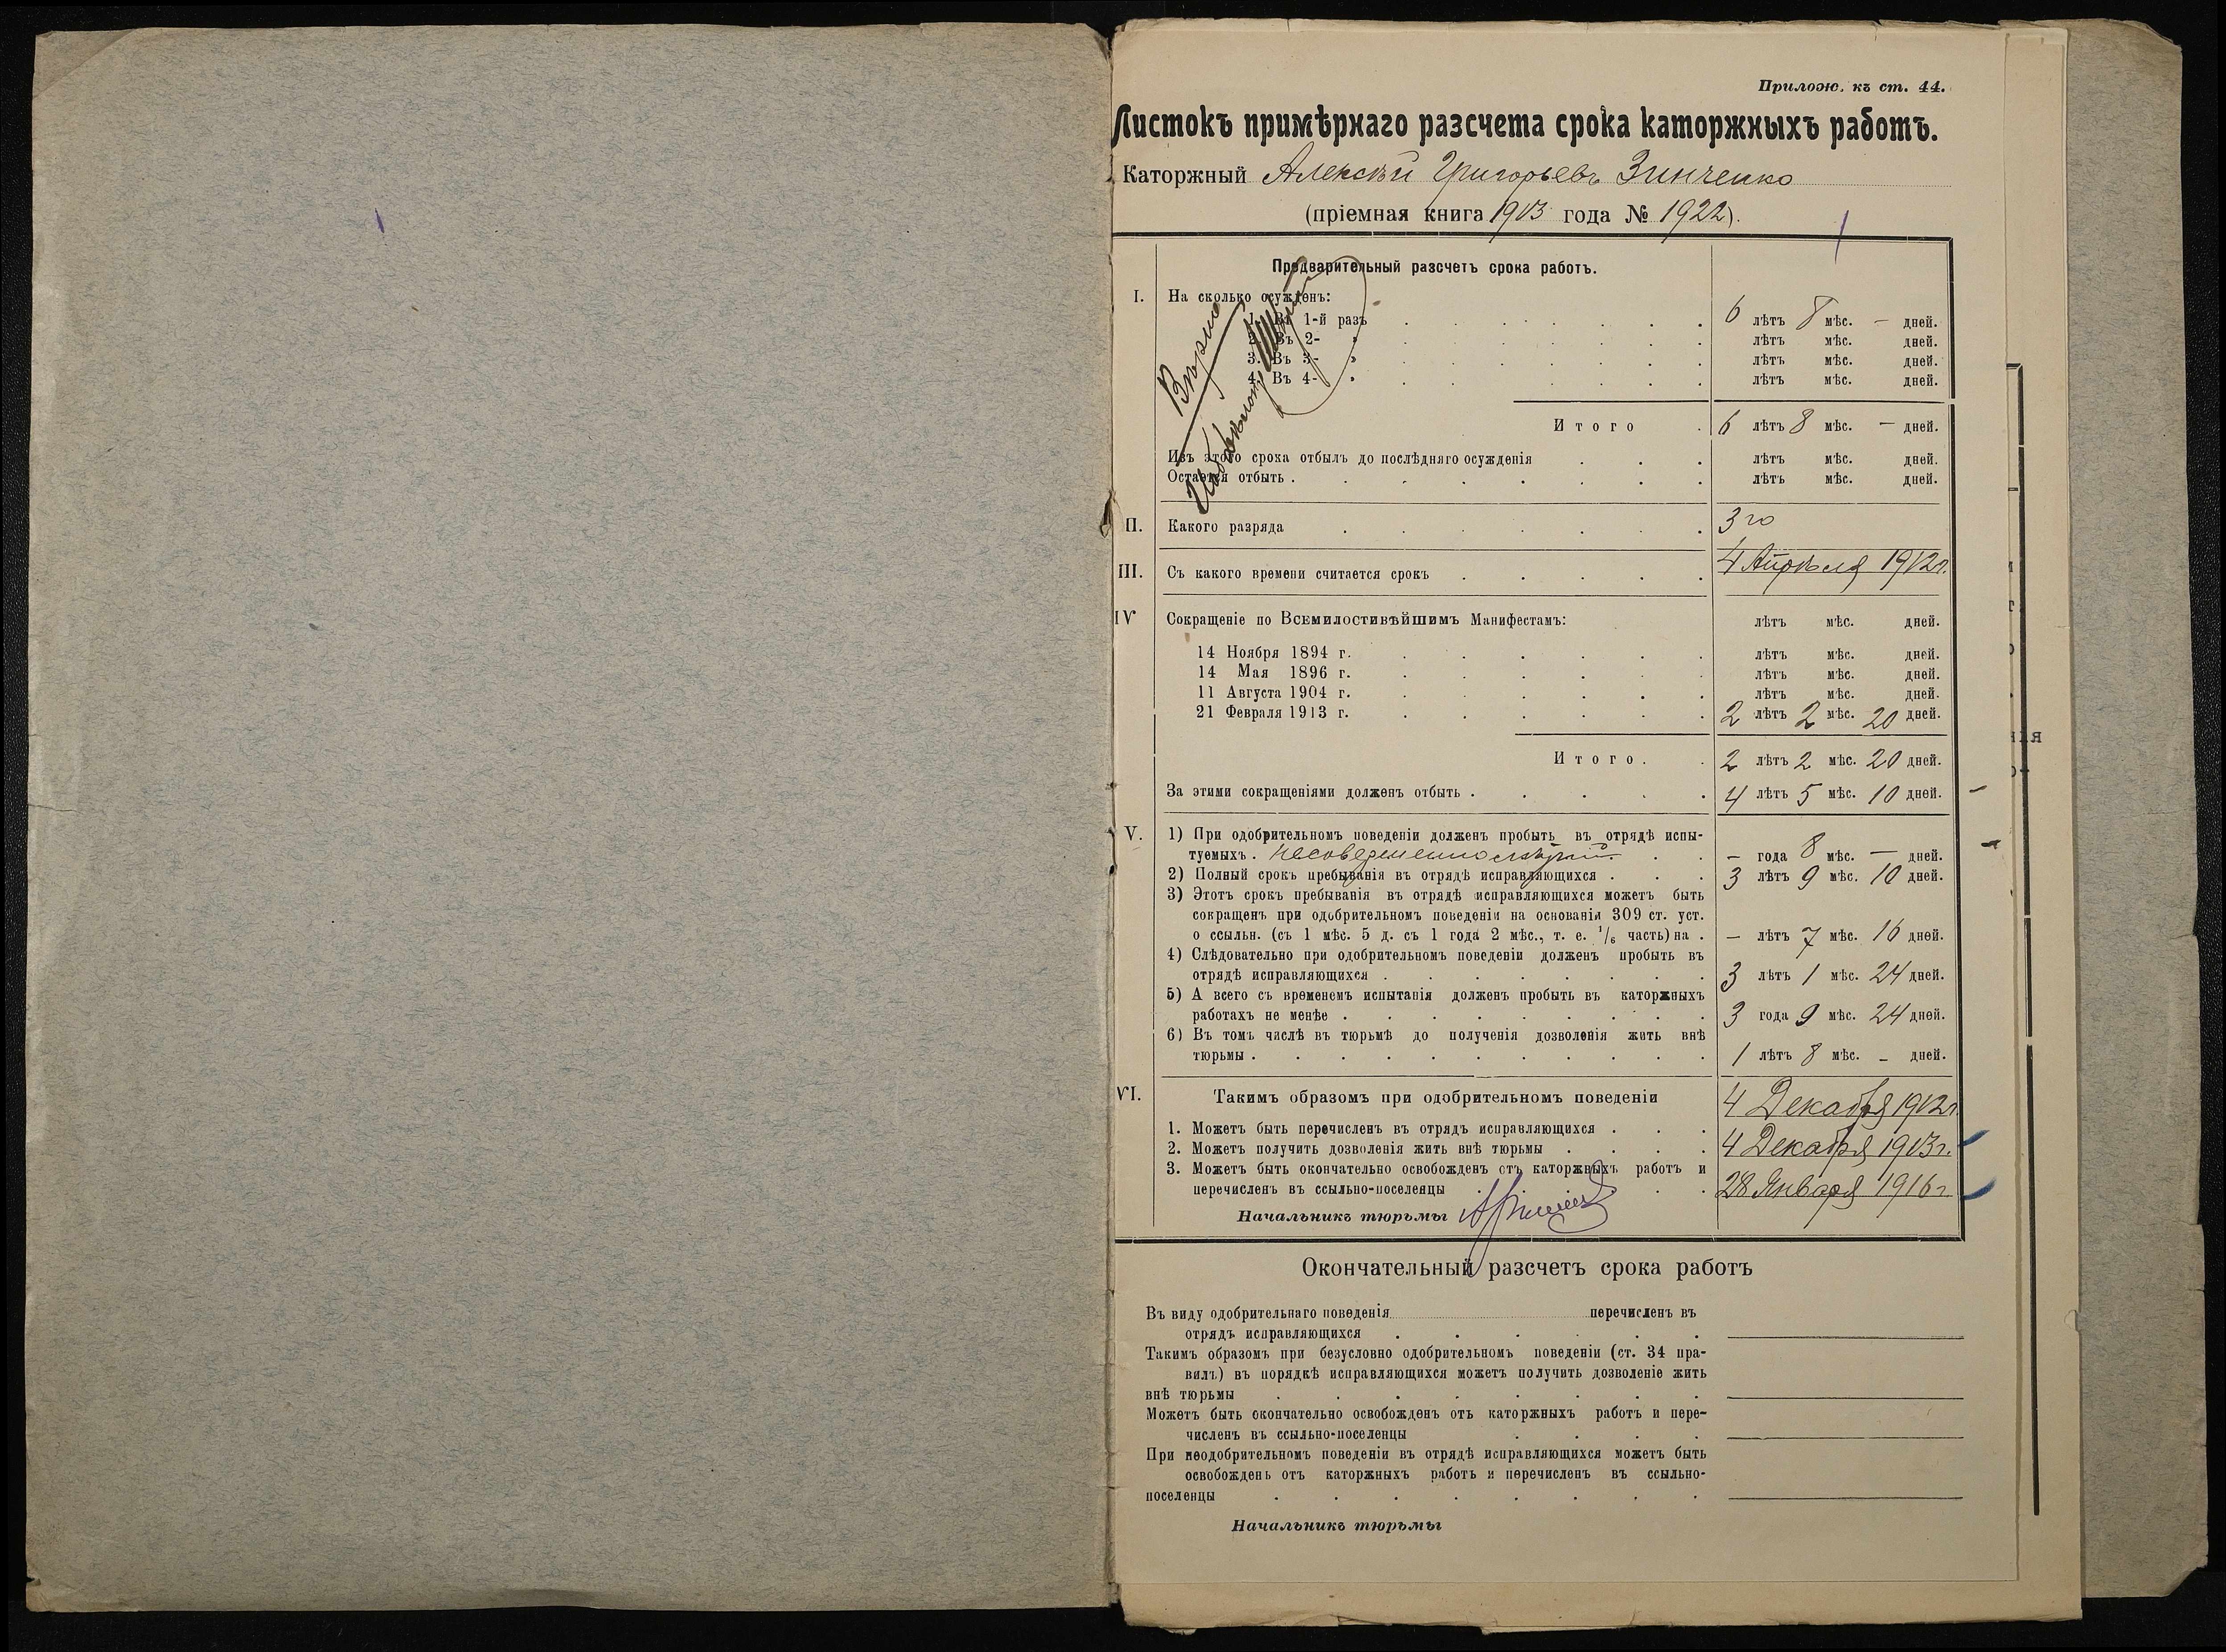 Прилож. къ ст. 44.
Листокъ примѣрнаго разсчета срока каторжныхъ работъ.
Каторжный Алексѣй Григорьевъ Зинченко
(пріемная книга 1913 года № 1922).
Предварительный разсчетъ срока работъ.
I. На сколько осужденъ:
1. Въ 1-й разъ 6 лѣтъ 8 мѣс. — дней.
2. Въ 2- » лѣтъ мѣс. дней.
3. Въ 3- » лѣтъ мѣс. дней.
4. Въ 4- » лѣтъ мѣс. дней.
Вѣрно
Итого 6 лѣтъ 8 мѣс. — дней.
Изъ этого срока отбылъ до послѣдняго осужденія лѣтъ мѣс. дней.
Остается отбыть . лѣтъ мѣс. дней.
II. Какого разряда 3го
III. Съ какого времени считается срокъ 4 Апрѣля 1912г.
IV Сокращеніе по Всемилостивѣйшимъ Манифестамъ: лѣтъ мѣс. дней.
14 Ноября 1894 г. лѣтъ мѣс. дней.
14 Мая 1896 г. лѣтъ мѣс. дней.
11 Августа 1904 г. лѣтъ мѣс. дней.
21 Февраля 1913 г. 2 лѣтъ 2 мѣс. 20 дней.
Итого. 2 лѣтъ 2 мѣс. 20 дней.
За этими сокращеніями должевъ отбыть . 4 лѣтъ 5 мѣс. 10 дней.
V. 1) При одобрительномъ поведеніи долженъ пробыть въ отрядѣ испы-
туемыхъ. несовершеннолѣтній — года 8 мѣс. — дней.
2) Полный срокъ пребыванія въ отрядѣ исправляющихся . 3 лѣтъ 9 мѣс. 10 дней.
3) Этотъ срокъ пребыванія въ отрядѣ исправляющихся можетъ быть
сокращенъ при одобрительномъ поведеніи на основаніи 309 ст. уст.
о ссыльн. (съ 1 мѣс. 5 д. съ 1 года 2 мѣс., т. е. 1/6 часть) на . — лѣтъ 7 мѣс. 16 дней.
4) Слѣдовательно при одобрительномъ поведеніи долженъ пробыть въ
отрядѣ исправляющихся . 3 лѣтъ 1 мѣс. 24 дней.
5) А всего съ временемъ испытанія долженъ пробыть въ каторжныхъ
работахъ не менѣе . 3 года 9 мѣс. 24 дней.
6) Въ томъ числѣ въ тюрьмѣ до полученія дозволенія жить внѣ
тюрьмы . 1 лѣтъ 8 мѣс. — дней.
VI. Такимъ образомъ при одобрительномъ поведеніи
1. Можетъ быть перечисленъ въ отрядъ исправляющихся . 4 Декабря 1912г.
2. Можетъ получить дозволенія жить внѣ тюрьмы 4 Декабря 1913г.
3. Можетъ быть окончательно освобожденъ отъ каторжныхъ работъ и
перечисленъ въ ссыльно-поселенцы 28 Января 1916г
Начальникъ тюрьмы
Окончательный разсчетъ срока работъ
Въ виду одобрительнаго поведенія перечисленъ въ
отрядъ исправляющихся
Такимъ образомъ при безусловно одобрительномъ поведеніи (ст. 34 пра-
вилъ) въ порядкѣ исправляющихся можетъ получить дозволеніе жить
внѣ тюрьмы
Можетъ быть окончательно освобожденъ отъ каторжныхъ работъ и пере-
численъ въ ссыльно-поселенцы
При неодобрительномъ поведеніи въ отрядѣ исправляющихся можетъ быть
освобожденъ отъ каторжныхъ работъ и перечисленъ въ ссыльно-
поселенцы
Начальникъ тюрьмы